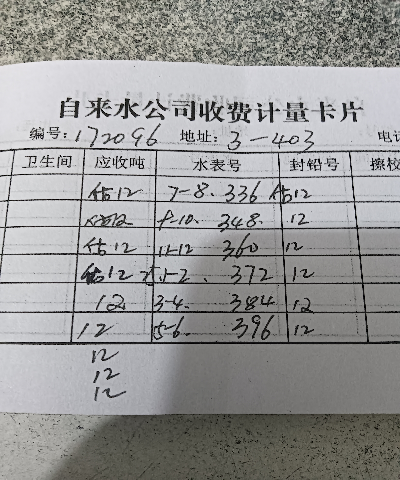 自来水公司收费计量卡片
编号:172096 地址:3-403 电话
卫生间 应收吨 水表号 封铅号 擦校
估12 7-8. 336 估12
12 9-10. 348. 12
估12 11-12 360 12
估12 1-2. 372 12
12 3-4. 384 12
12 5-6. 396 12
12
12
12